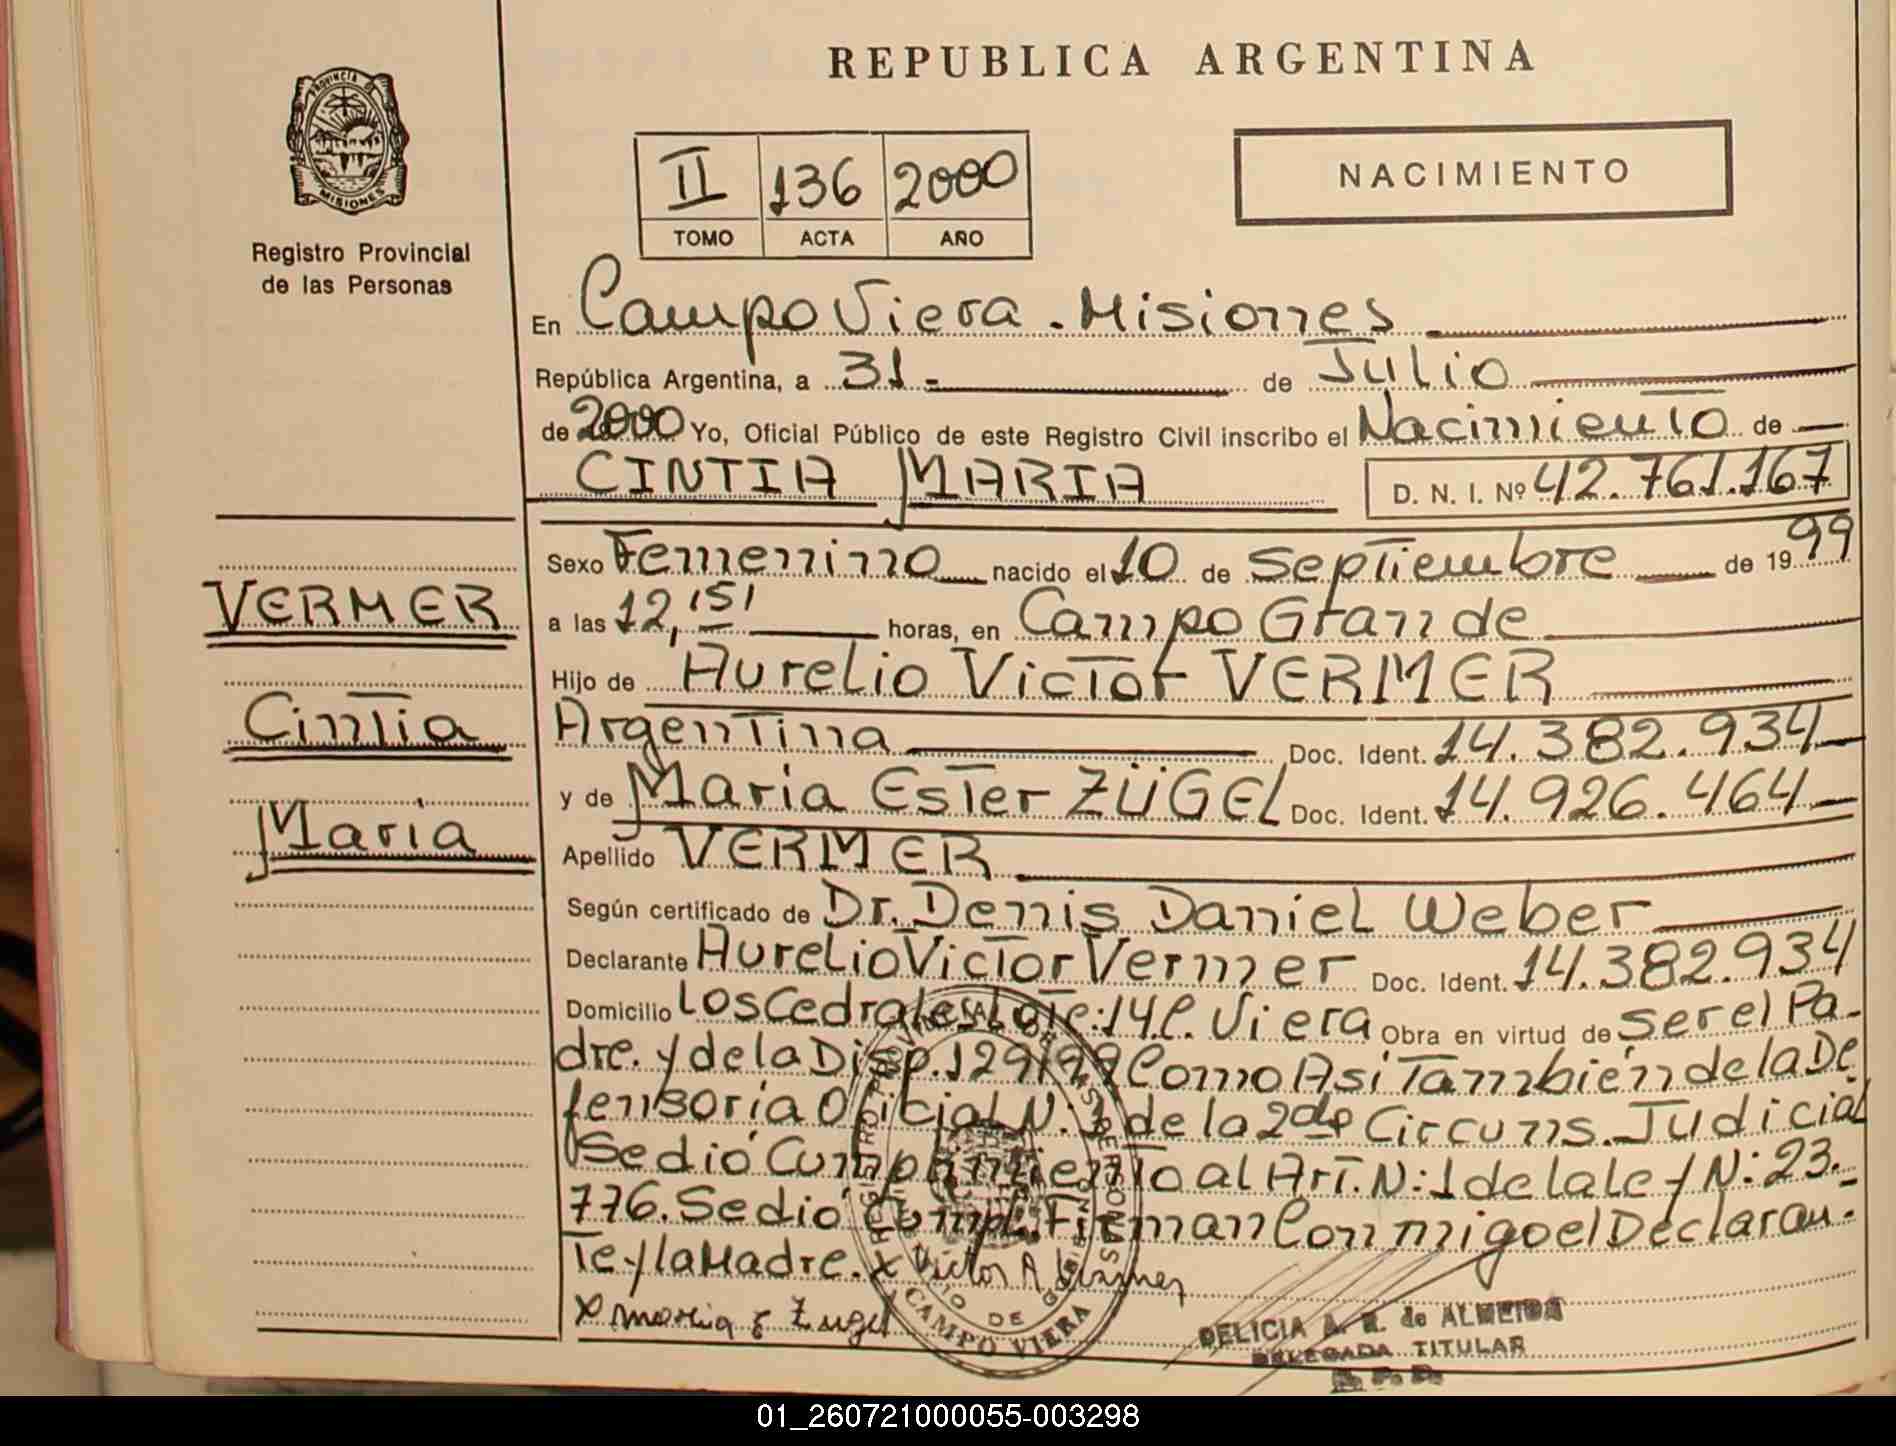 REPUBLICA ARGENTINA
PROVINCIA DE MISIONES
Registro Provincial
de las Personas
II 136 2000
TOMO ACTA AÑO
NACIMIENTO
En Campo Viera. Misiones
República Argentina, a 31 de Julio
de 2000 Yo, Oficial Público de este Registro Civil inscribo el Nacimiento de
CINTIA MARIA D. N. I. Nº 42.761.167
VERMER
Cintia
Maria
Sexo Femenino nacido el 10 de Septiembre de 1999
a las 12,15 horas, en Campo Grande
Hijo de Aurelio Victor VERMER
Argentina Doc. Ident. 14.382.934
y de Maria Ester ZÜGEL Doc. Ident. 14.926.464
Apellido VERMER
Según certificado de Dr. Denis Daniel Weber
Declarante Aurelio Victor Vermer Doc. Ident. 14.382.934
Domicilio Los Cedrales Lote: 14 C. Viera Obra en virtud de ser el Pa-
dre. y de la Disp. 129/99 Como Asi También de la De
fensoría Oficial N: 1 de la 2da Circuns. Judicial
Se dió Cumplimiento al Art. N: 1 de la ley N: 23.
776. Se dió Cumpl. Firman Conmigo el Declaran-
te y la Madre. x Victor A
x Maria E Zugel
REGISTRO PROVINCIAL DE LAS PERSONAS
CAMPO VIERA
DELICIA A. R. de ALMEIDA
DELEGADA TITULAR
R. P. P.
01_260721000055-003298